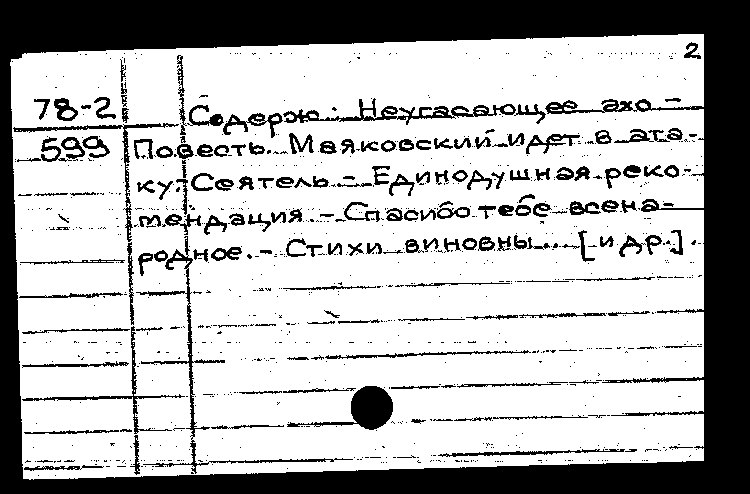 2
78-2 Содерж: Неугасающее эхо -
599 Повесть. Маяковский идет в ата-
ку.- Сеятель - Единодушная реко-
мендация. - Спасибо тебе всена-
родное. - Стихи виновны... [и др.].